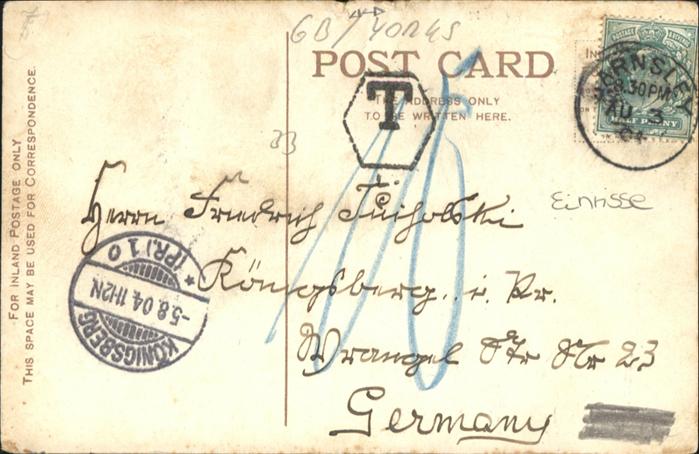 GB/YORKS
POST CARD
THE ADDRESS ONLY
TO BE WRITTEN HERE.
T
HORNSLEY
8.30PM
AU 3
04
HALF PENNY
33
Einrisse
FOR INLAND POSTAGE ONLY
THIS SPACE MAY BE USED FOR CORRESPONDENCE.
Herrn Friedrich Tucholski
Königsberg. i. Pr.
Wrangel Str Nr 23
Germany
KÖNIGSBERG
(PR.) 1 O
-5.8.04.11-12N
10